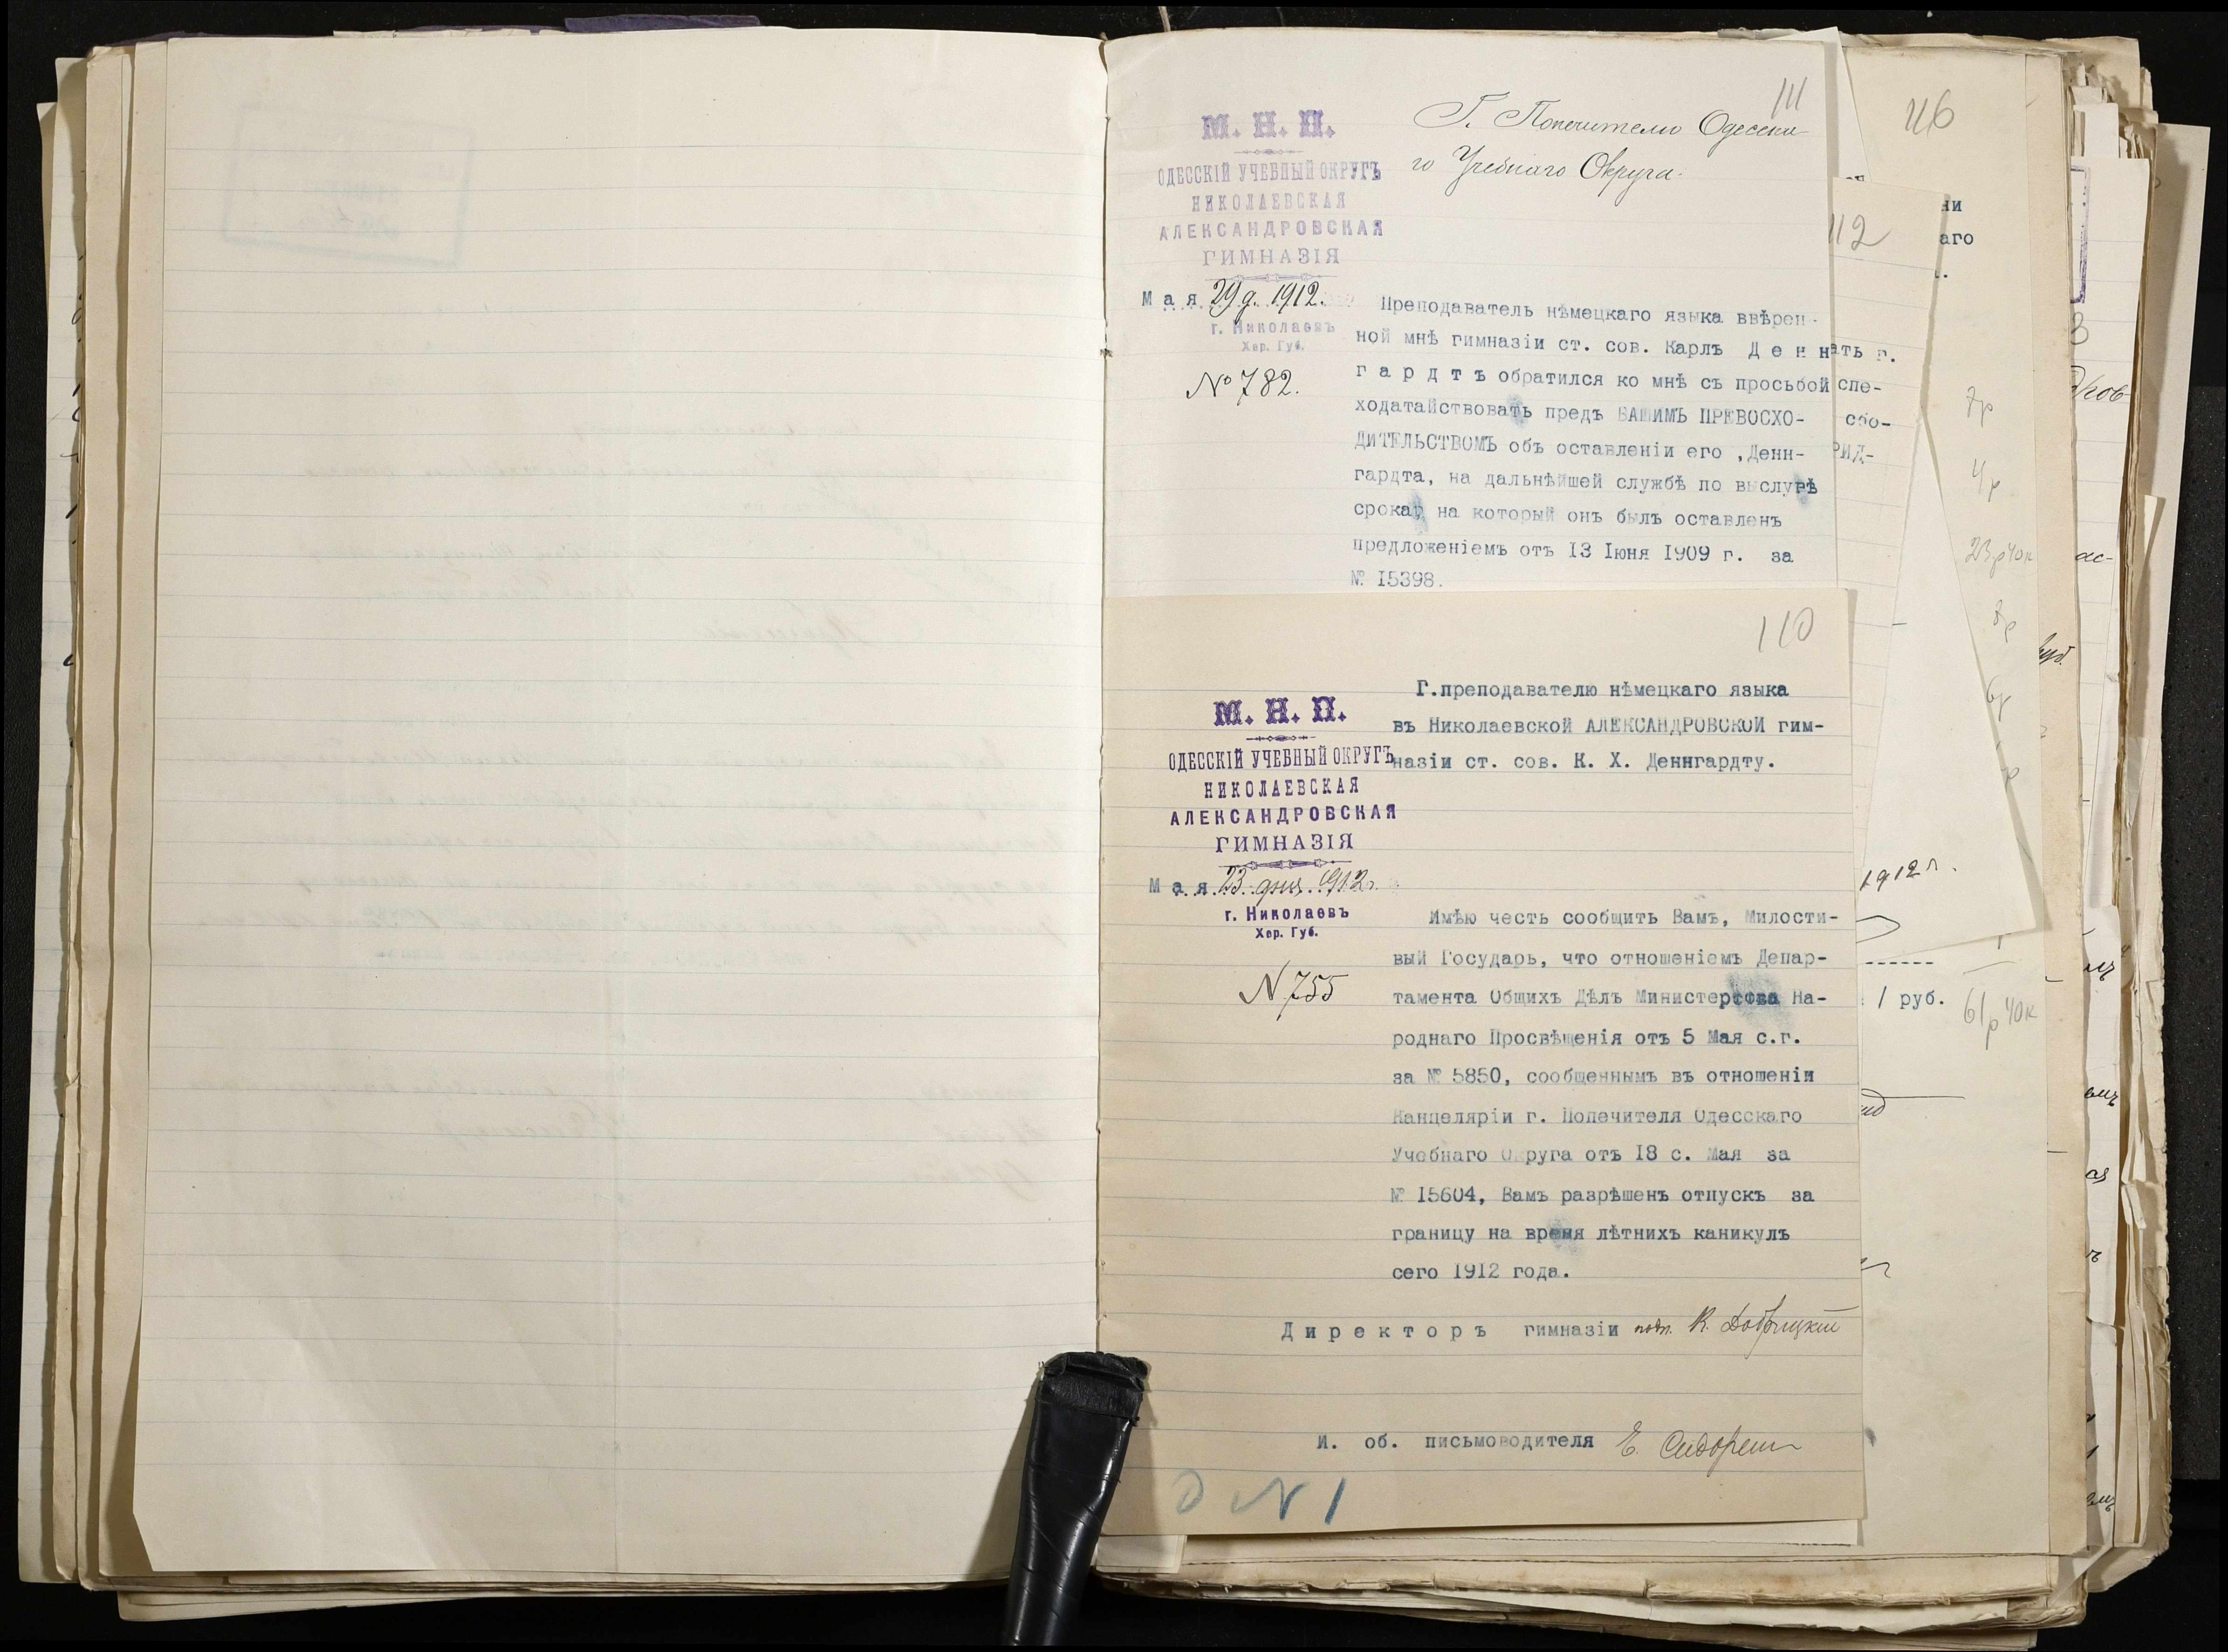 111
М. Н. П.
ОДЕССКІЙ УЧЕБНЫЙ ОКРУГЪ
НИКОЛАЕВСКАЯ
АЛЕКСАНДРОВСКАЯ
ГИМНАЗІЯ
Мая 29 д. 1912.
г. Николаевъ
Хер. Губ.
№ 782.
Г. Попечителю Одесска-
го Учебнаго Округа.
Преподаватель нѣмецкаго языка ввѣрен-
ной мнѣ гимназіи ст. сов. Карлъ Д е н н
г а р д т ъ обратился ко мнѣ съ просьбой
ходатайствовать предъ ВАШИМЪ ПРЕВОСХО-
ДИТЕЛЬСТВОМЪ объ оставленіи его ,Денн-
гардта, на дальнѣйшей службѣ по выслугѣ
срока, на который онъ былъ оставленъ
предложеніемъ отъ I3 Іюня I909 г. за
№ I5398.
110
М. Н. П.
ОДЕССКІЙ УЧЕБНЫЙ ОКРУГЪ
НИКОЛАЕВСКАЯ
АЛЕКСАНДРОВСКАЯ
ГИМНАЗІЯ
Мая 23 дня 1912 г.
г. Николаевъ
Хер. Губ.
N 755
Г.преподавателю нѣмецкаго языка
въ Николаевской АЛЕКСАНДРОВСКОЙ гим-
назіи ст. сов. К. Х. Деннгардту.
Имѣю честь сообщить Вамъ, Милости-
вый Государь, что отношеніемъ Депар-
тамента Общихъ Дѣлъ Министерства На-
роднаго Просвѣщенія отъ 5 Мая с.г.
за № 5850, сообщеннымъ въ отношеніи
Канцеляріи г. Попечителя Одесскаго
Учебнаго Округа отъ I8 с. Мая за
№ I5604, Вамъ разрѣшенъ отпускъ за
границу на время лѣтнихъ каникулъ
сего I9I2 года.
Д и р е к т о р ъ гимназіи подп. К. Добрицкій
И. об. письмоводителя Е. Сидорен
N 1
112
ать г.
спе-
соо-
РИД-
1912 г.
1 руб.
116
ни
аго
7р
4р
23р 40к
8р
6р
61р 40к